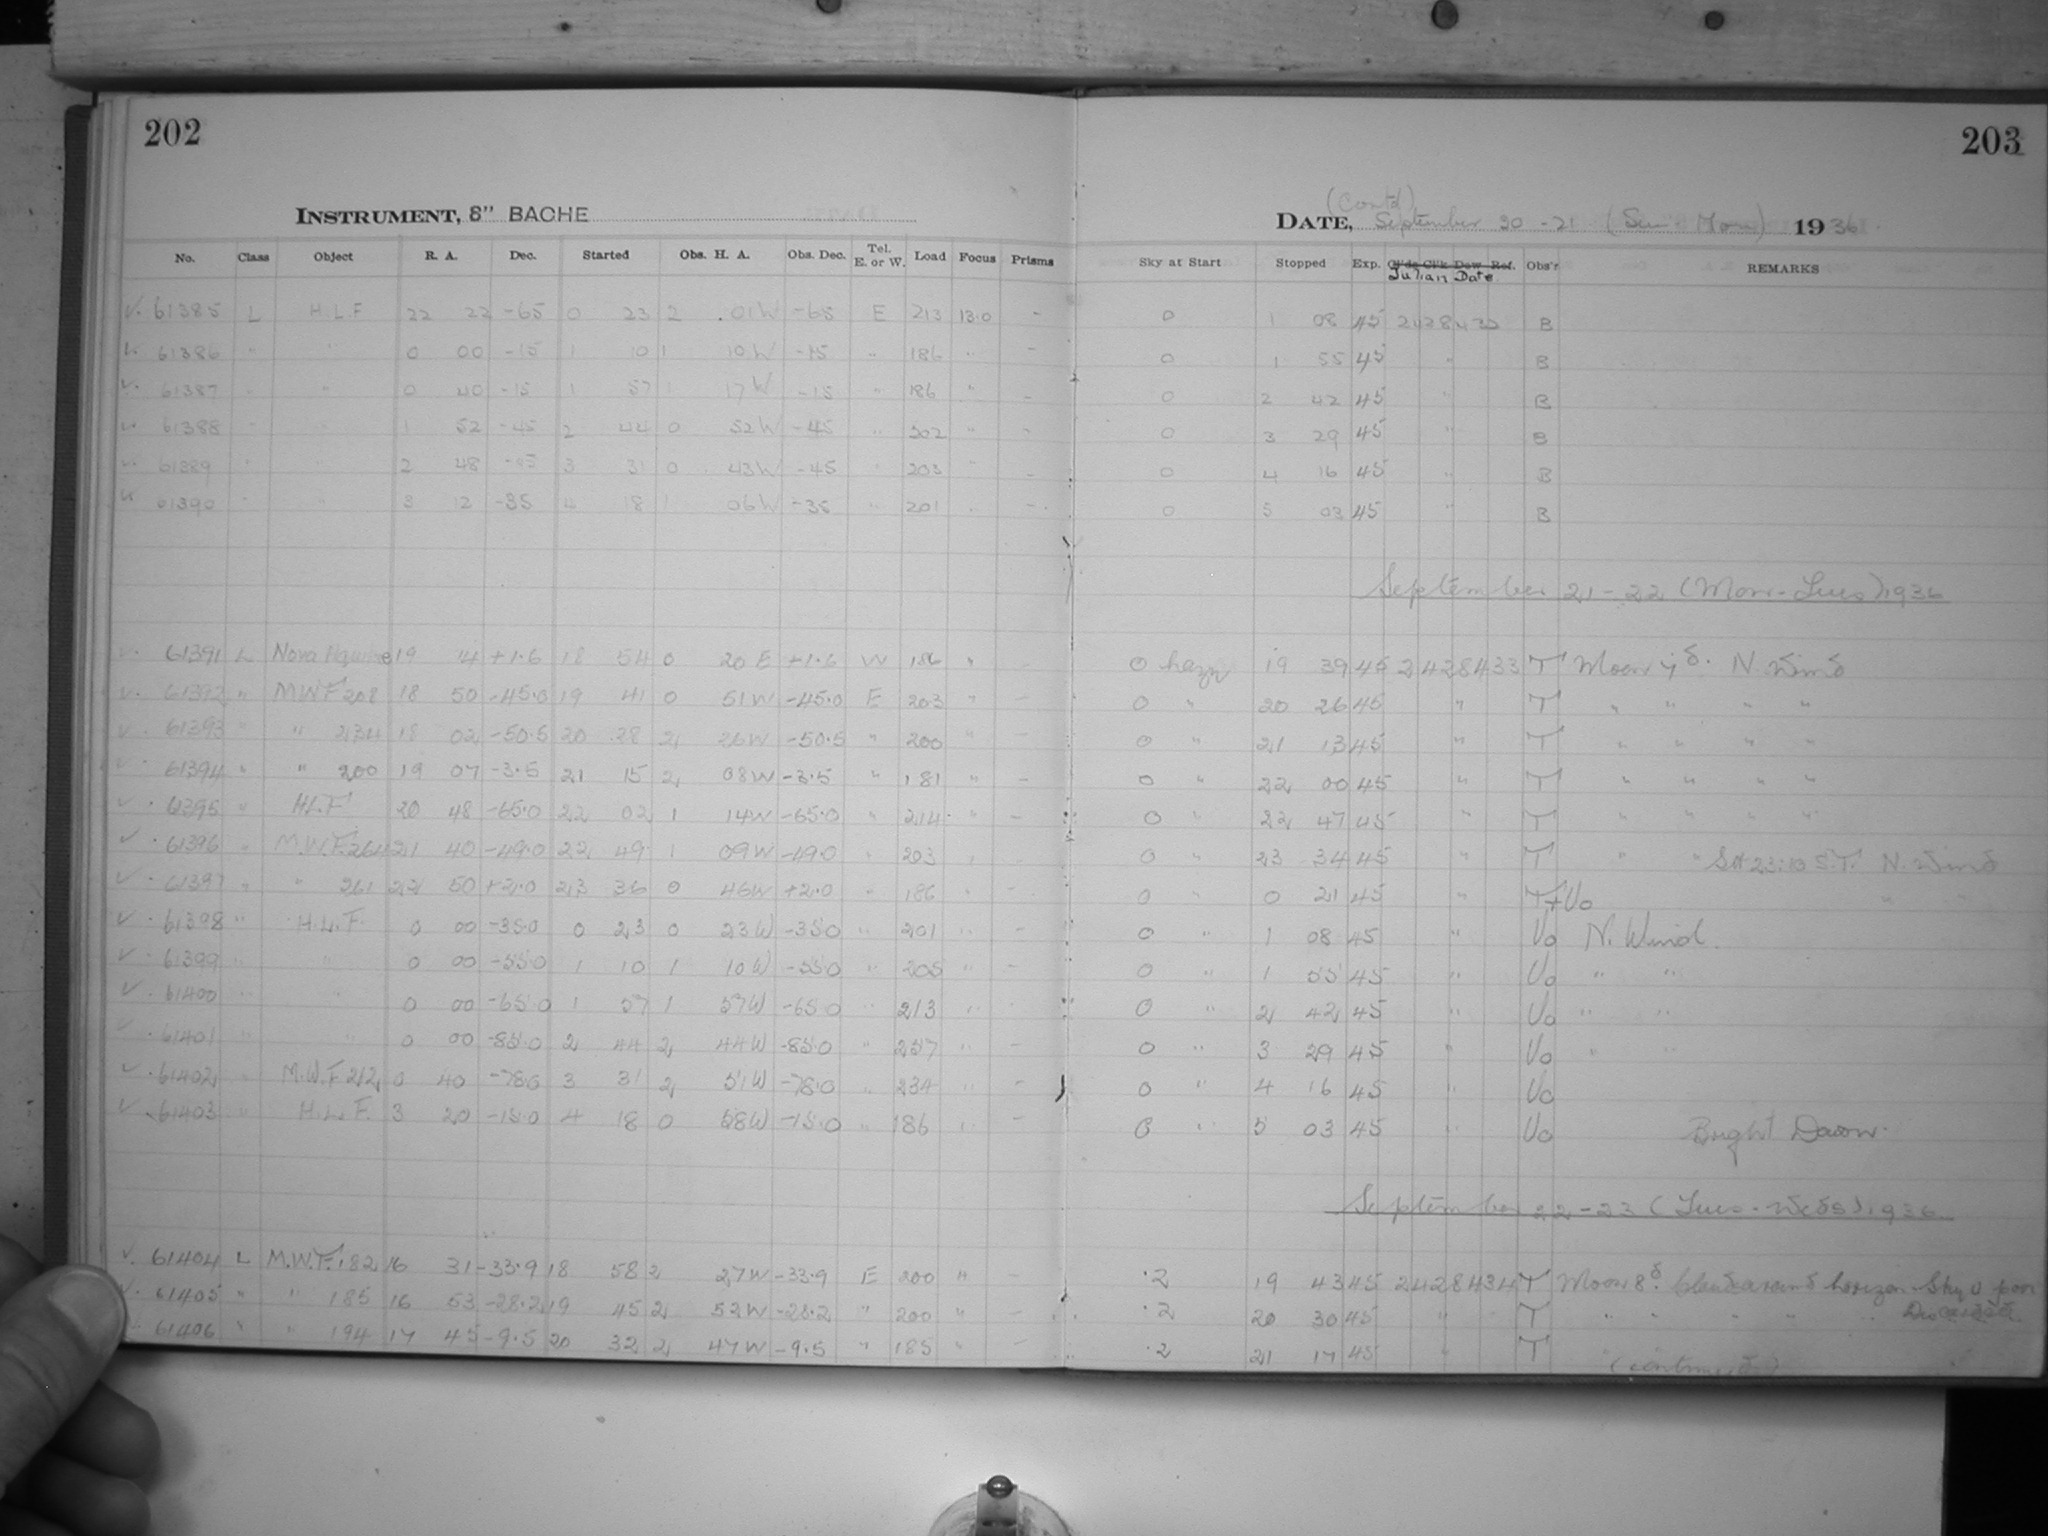 202
203
INSTRUMENT, 8" BACHE
(Contd)
DATE, September 20 - 21 (Sun - Mon) 1936
No. Class Object R. A. Dec. Started Obs. H. A. Obs. Dec. Tel. E. or W. Load Focus Prisms Sky at Start Stopped Exp. Cl'de Cl'k Dew Ref. Obs'r REMARKS
Julian Date
✓. 61385 L H.L.F 22 22 -65 0 23 2 .01W -65 E 213 13.0 - 0 1 08 45 2428432 B
✓. 61386 " " 0 00 -15 1 10 1 10W -15 " 186 " - 0 1 55 45 " B
✓. 61387 " " 0 40 -15 1 57 1 17W -15 " 186 " - 0 2 42 45 " B
✓. 61388 " " 1 52 -45 2 44 0 52W -45 " 202 " - 0 3 29 45 " B
✓. 61389 " " 2 48 -45 3 31 0 43W -45 " 203 " - 0 4 16 45 " B
✓. 61390 " " 3 12 -35 4 18 1 06W -35 " 201 " - 0 5 03 45 " B
September 21-22 (Mon-Tues) 1936
✓. 61391 L Nova Aquilae 19 14 +1.6 18 54 0 20 E +1.6 W 186 " - 0 hazy 19 39 45 2428433 T Moon 7d. N. Wind
✓. 61392 " M.W.F 208 18 50 -45.0 19 41 0 51W -45.0 E 203 " - 0 " 20 26 45 " T " " " "
✓. 61393 " " 234 18 02 -50.5 20 28 2 26W -50.5 " 200 " - 0 " 21 13 45 " T " " " "
✓. 61394 " " 200 19 07 -3.5 21 15 2 08W -3.5 " 181 " - 0 " 22 00 45 " T " " " "
✓. 61395 " H.L.F 20 48 -65.0 22 02 1 14W -65.0 " 214 " - 0 " 22 47 45 " T " " " "
✓. 61396 " M.W.F. 264 21 40 -49.0 22 49 1 09W -49.0 " 203 " - 0 " 23 34 45 " T " " Set 23:10 S.T. N. Wind
✓. 61397 " " 261 22 50 +2.0 23 36 0 46W +2.0 " 186 " - 0 " 0 21 45 " T+Uo " "
✓. 61398 " H.L.F. 0 00 -35.0 0 23 0 23W -35.0 " 201 " - 0 " 1 08 45 " Uo N. Wind.
✓. 61399 " " 0 00 -55.0 1 10 1 10W -55.0 " 205 " - 0 " 1 55 45 " Uo " "
✓. 61400 " " 0 00 -65.0 1 57 1 57W -65.0 " 213 " - 0 " 2 42 45 " Uo " "
✓ .61401 " " 0 00 -85.0 2 44 2 44W -85.0 " 257 " - 0 " 3 29 45 " Uo " "
✓ .61402 " M.W.F. 212 0 40 -78.0 3 31 2 51W -78.0 " 234 " - 0 " 4 16 45 " Uo
✓ .61403 " H.L.F. 3 20 -15.0 4 18 0 58W -15.0 " 186 " - 0 " 5 03 45 " Uo Bright Dawn.
September 22-23 (Tues-Weds) 1936
✓. 61404 L M.W.F. 182 16 31 -33.9 18 58 2 27W -33.9 E 200 " - .2 19 43 45 2428434 T Moon 8d. Clouds around horizon Sky v poor
✓. 61405 " " 185 16 53 -28.2 19 45 2 52W -28.2 " 200 " - .2 20 30 45 " T " " " "
61406 " " 194 17 45 -9.5 20 32 2 47W -9.5 " 185 " - .2 21 17 45 " T
(continued)